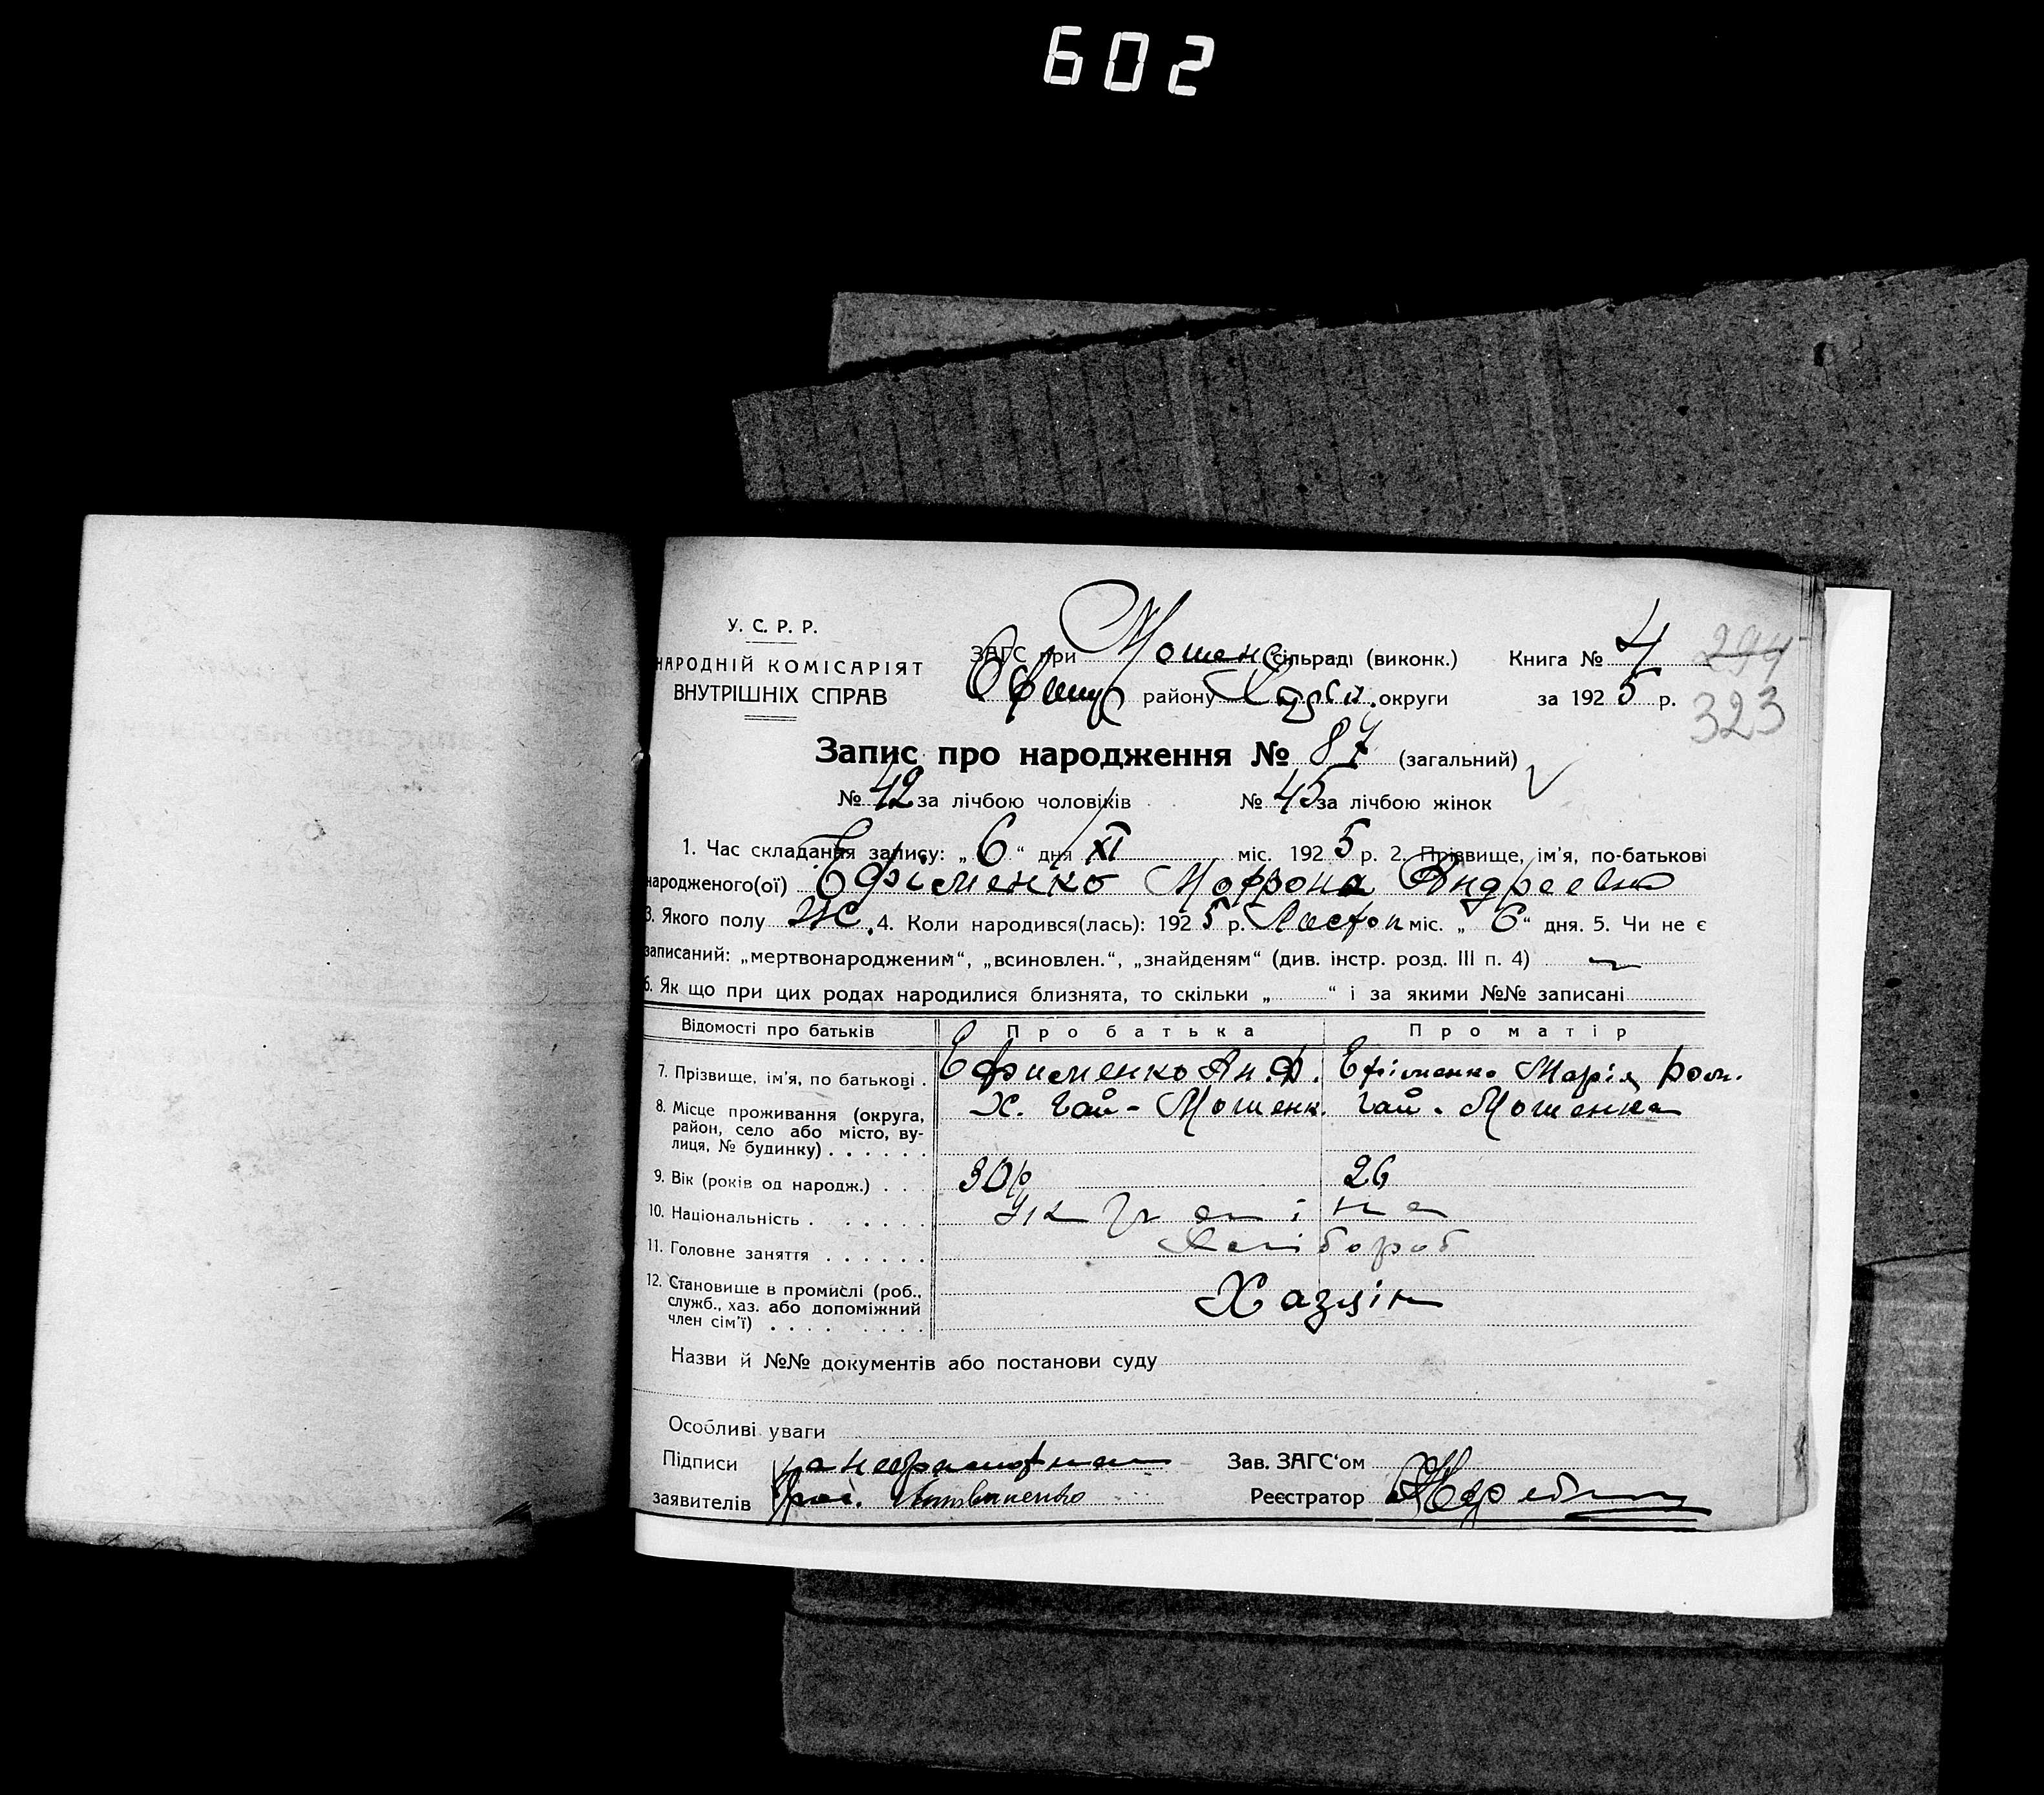 602
У. С. Р. Р.
НАРОДНІЙ КОМІСАРІЯТ
ВНУТРІШНІХ СПРАВ
ЗАГС при Мошенс сільраді (виконк.)
району округи
Книга № 4
за 1925 р.
294
323
Запис про народження № 87 (загальний)
№ 42 за лічбою чоловіків № 45 за лічбою жінок
1. Час складання запису: „6“ дня XI міс. 1925 р. 2. Прізвище, ім'я, по-батькові
народженого(ої) Ефіменко Мофрона Андреевна
3. Якого полу Ж. 4. Коли народився(лась): 1925 р. Листоп міс. „6“ дня. 5. Чи не є
записаний: „мертвонародженим“, „всиновлен.“, „знайденям“ (див. інстр. розд. III п. 4)
6. Як що при цих родах народилися близнята, то скільки „ “ і за якими №№ записані
Відомості про батьків Про батька Про матір
7. Прізвище, ім'я, по батькові . Ефименко Ан. Ф. Ефіменко Марія Ром.
8. Місце проживання (округа, Х. Гай - Мошенк. Гай - Мошенка
район, село або місто, ву-
лиця, № будинку) . . . . . .
9. Вік (років од народж.) . . . 30 р 26
10. Національність . . . . . . Україна
11. Головне заняття . . . . . . Хлібороб
12. Становище в промислі (роб.,
служб., хаз. або допоміжний Хазяін
член сім'ї) . . . . . . . .
Назви й №№ документів або постанови суду
Особливі уваги
Підписи неграмотная Зав. ЗАГС'ом
заявителів Реєстратор